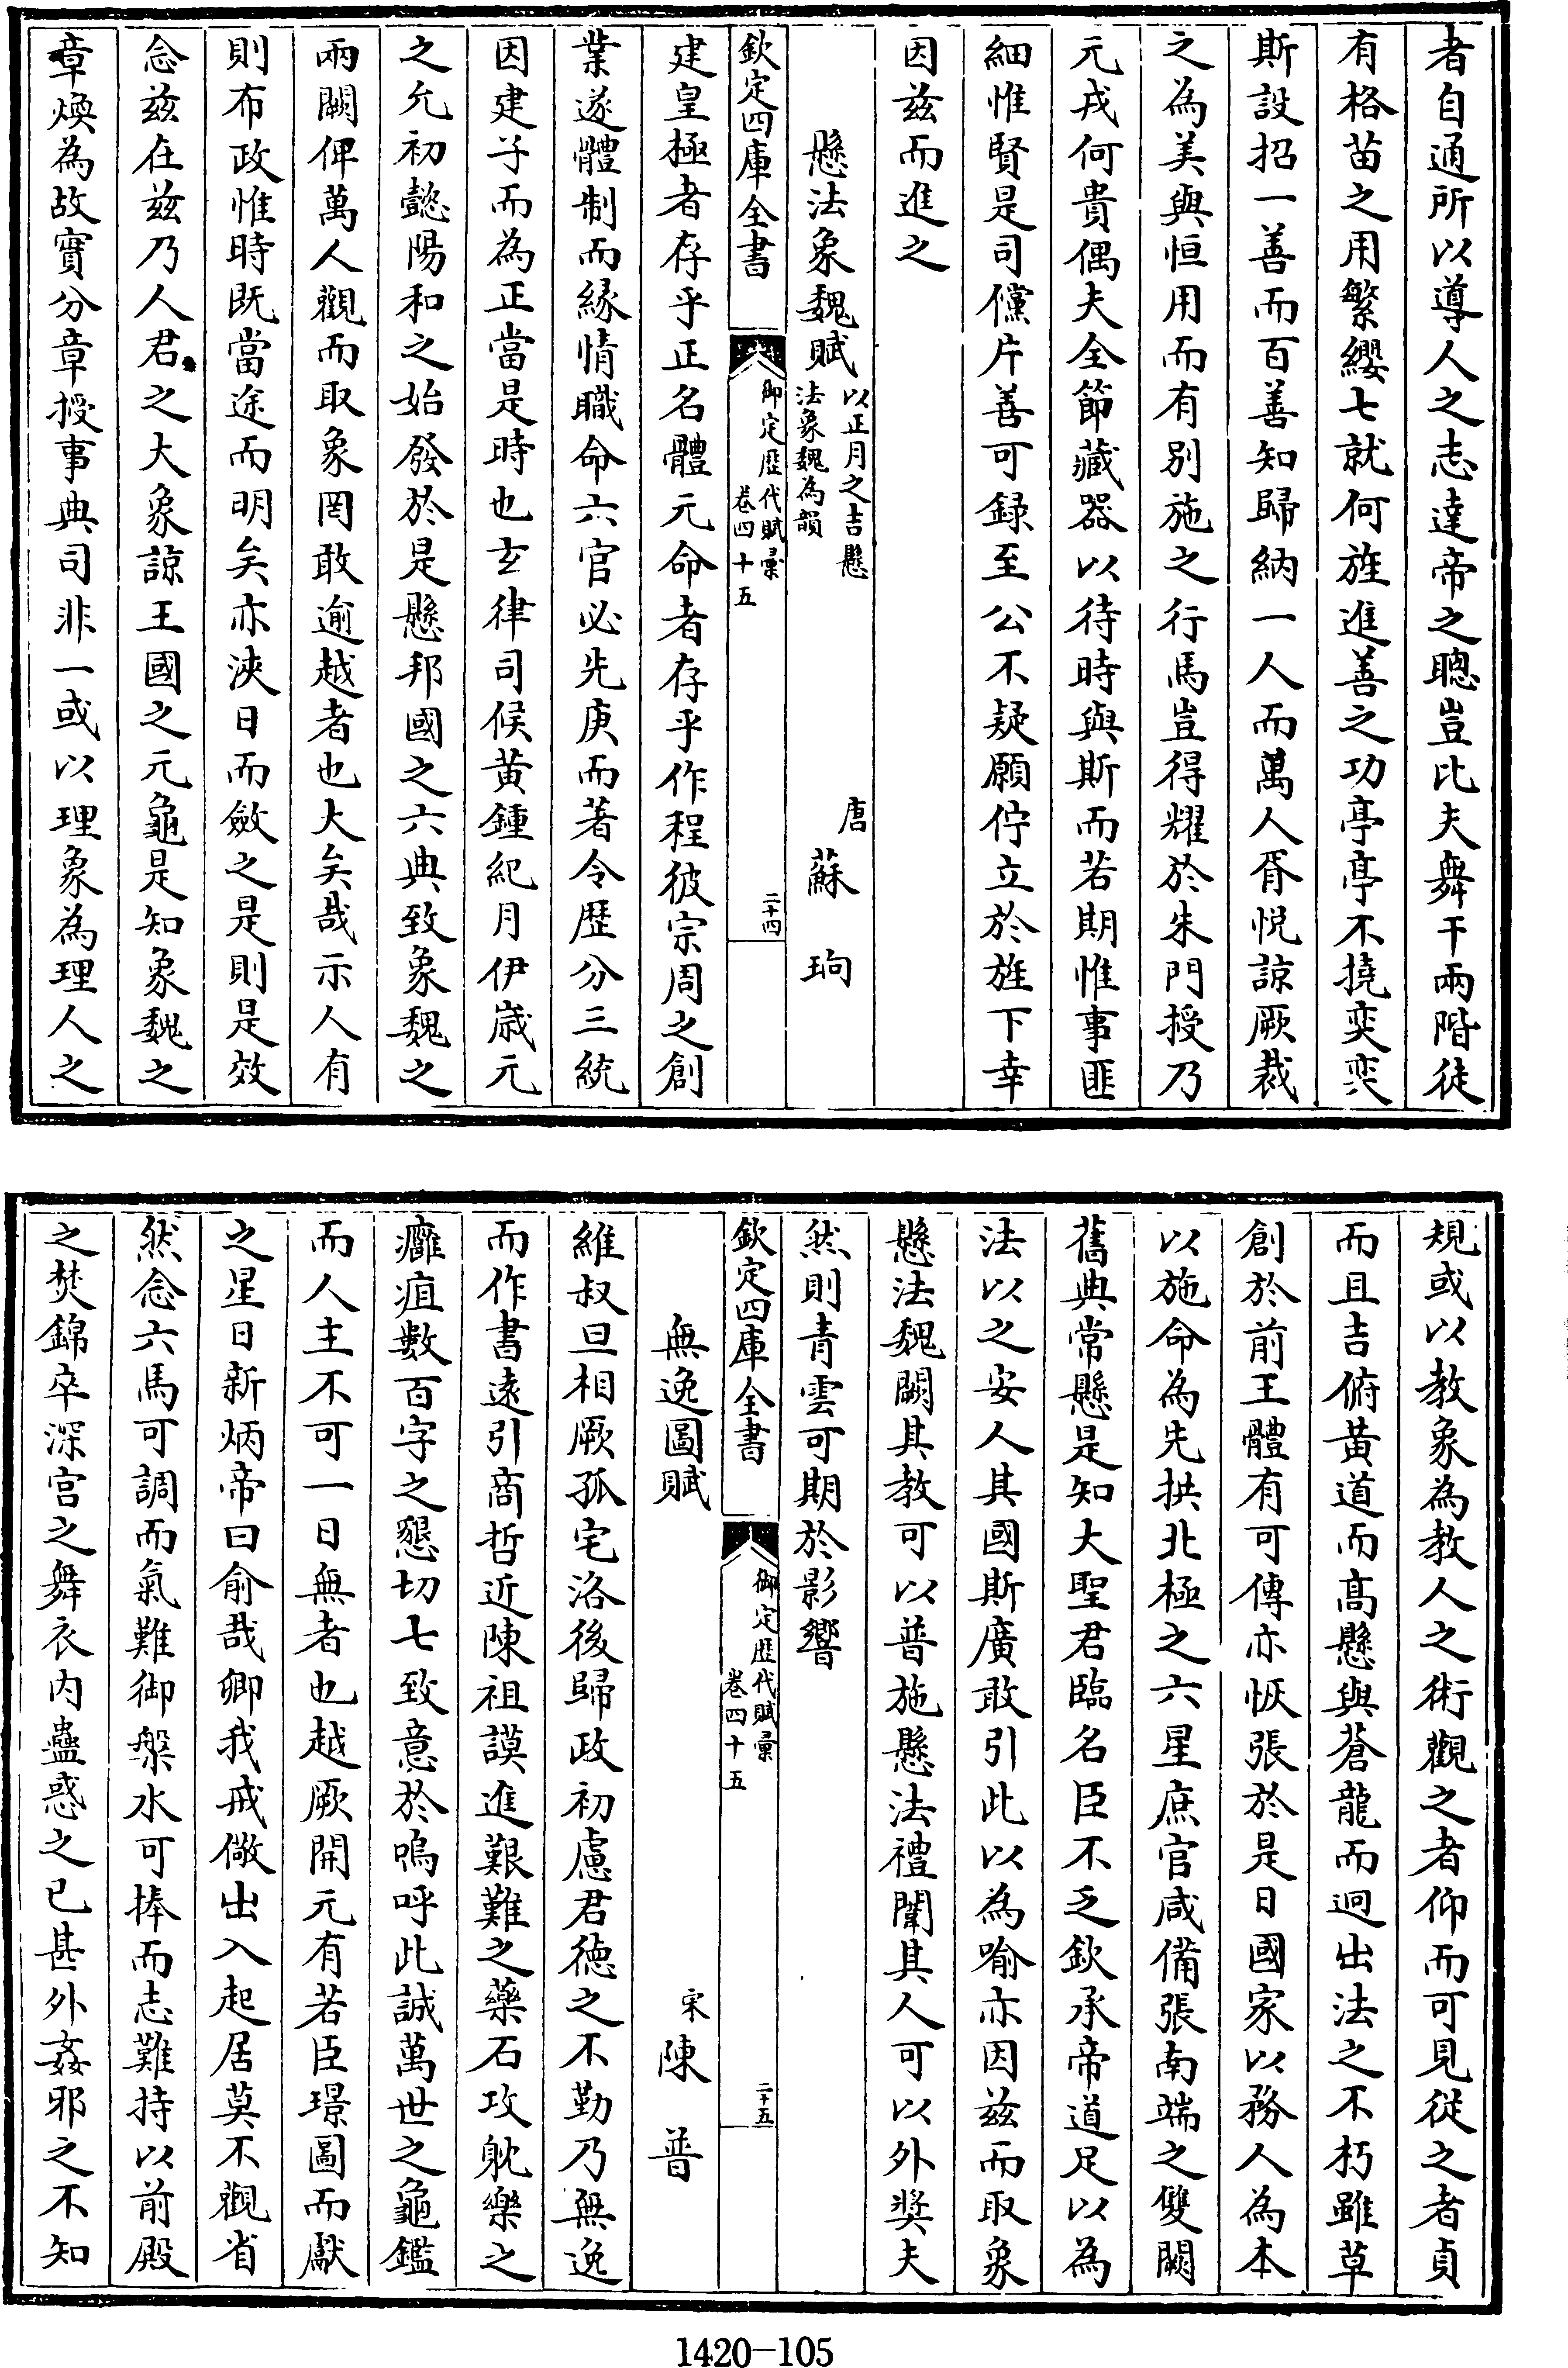 者自通所以導人之志達帝之聰豈比夫舞干兩階徒
有格苗之用繁纓七就何旌進善之功亭亭不撓奕奕
斯設招一善而百善知歸納一人而萬人胥悅諒厥裁
之為美與恒用而有别施之行馬豈得耀於朱門授乃
元戎何貴偶夫全節藏器以待時與斯而若期惟事匪
細惟賢是司儻片善可録至公不疑願佇立於旌下幸
因兹而進之
懸法象魏賦
以正月之吉懸
法象魏為韻
唐
蘇珦
欽定四庫全書
御定歴代賦彙
卷四十五
二十四
建皇極者存乎正名體元命者存乎作程彼宗周之創
業遂體制而緣情職命六官必先庚而著令歴分三統
因建子而為正當是時也玄律司候黄鍾紀月伊嵗元
之允初懿陽和之始發於是懸邦國之六典致象魏之
兩闕俾萬人觀而取象罔敢逾越者也大矣哉示人有
則布政惟時既當途而明矣亦浹日而斂之是則是效
念兹在兹乃人君之大象諒王國之元龜是知象魏之
章煥為故實分章授事典司非一或以理象為理人之
規或以教象為教人之術觀之者仰而可見從之者貞
而且吉俯黄道而髙懸與蒼龍而迥出法之不朽雖草
創於前王體有可傳亦恢張於是日國家以務人為本
以施命為先拱北極之六星庶官咸備張南端之雙闕
舊典常懸是知大聖君臨名臣不乏欽承帝道足以為
法以之安人其國斯廣敢引此以為喻亦因兹而取象
懸法魏闕其教可以普施懸法禮闈其人可以外奬夫
然則青雲可期於影響
欽定四庫全書
御定歴代賦彙
卷四十五
二十五
無逸圖賦
宋
陳普
維叔旦相厥孤宅洛後歸政初慮君徳之不勤乃無逸
而作書遠引商哲近陳祖謨進艱難之藥石攻躭樂之
癰疽數百字之懇切七致意於嗚呼此誠萬世之龜鑑
而人主不可一日無者也越厥開元有若臣璟圖而獻
之星日新炳帝曰俞哉卿我戒儆出入起居莫不觀省
然念六馬可調而氣難御槃水可捧而志難持以前殿
之焚錦卒深宫之舞衣内蠱惑之已甚外姦邪之不知
1420-105